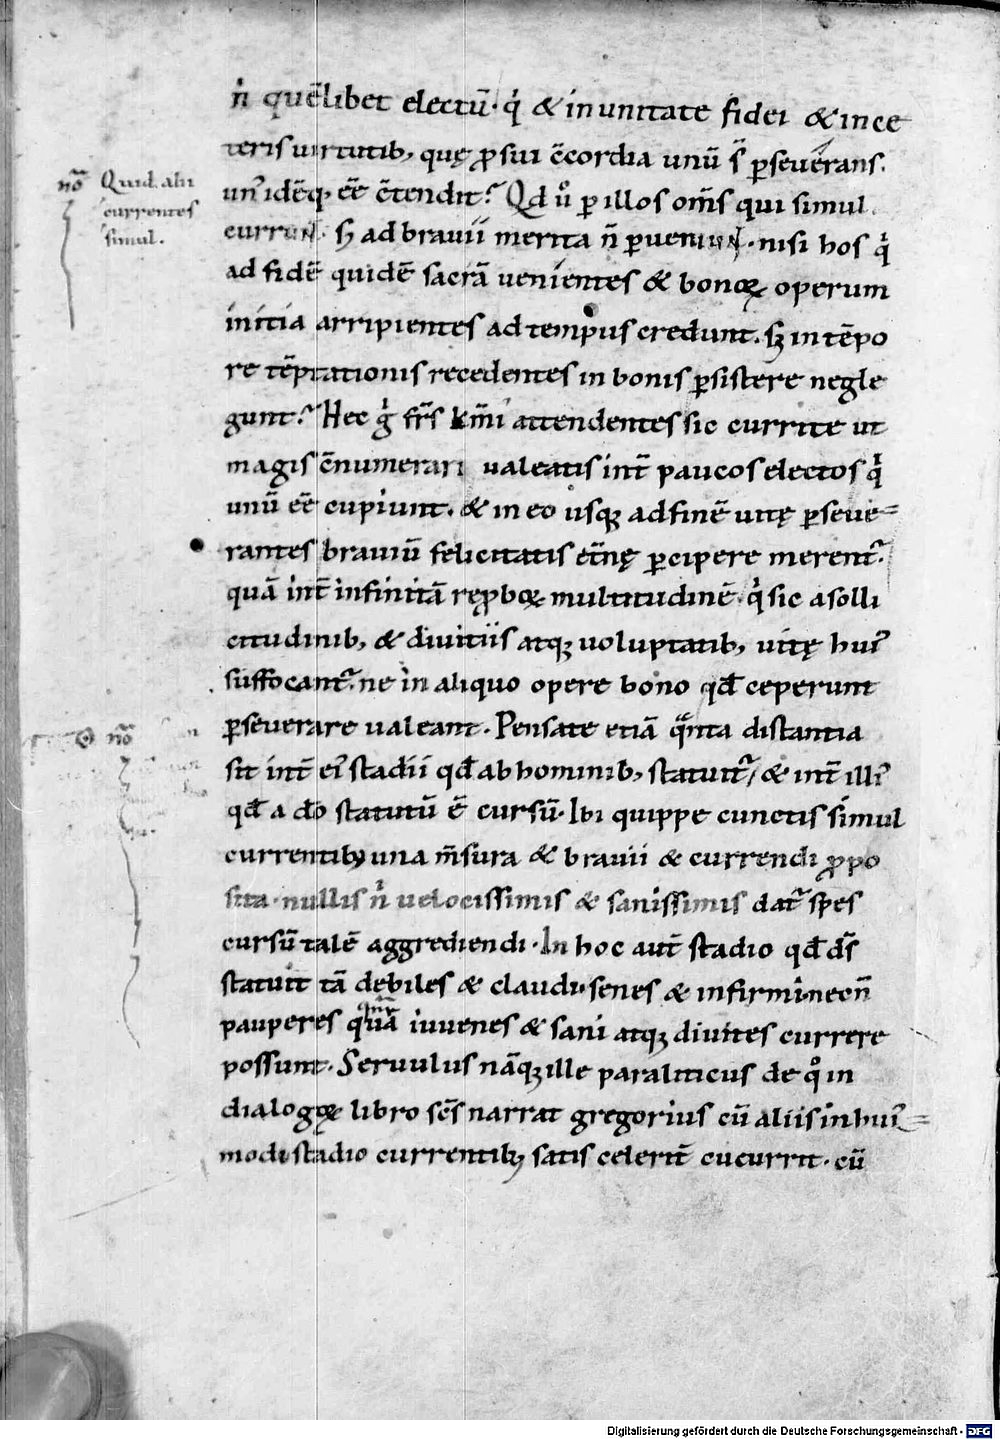 nͥ quēlibet electū· qͥ & in unitate fidei & in ce
teris virtutib; quę ꝓ sui c̄cordia unū s̄ ꝑseverans.
un᷒ idēq; eē c̄tendit? Qd u̇ ꝑ illos om̄s qui simul
currunt. sꝫ ad bravii merita n̄ ꝑveniunt· nisi hos qͥ
ad fidē quidē sacrā venientes & bonoꝝ operum
initia arripientes ad tempus credunt. sꝫ in tēpo
re tēptationis recedentes in bonis ꝑsistere negle
gunt? Hec gͥ fr̄s k̄mi attendentes sic currite ut
magis c̄numerari valeatis int̄ paucos electos qͥ
unū eē cupiunt. & in eo usqꝫ ad finē vitę ꝑseve=
rantes braviū felicitatis et̄nę ꝑcipere merent᷑.
quā int̄ infinitā reꝓboꝝ multitudinē· qͥ sic a solli
citudinib; & divitiis atqꝫ voluptatib; vitę hui᷒
suffocant᷑. ne in aliquo opere bono qd̄ ceperunt
ꝑseverare valeant. Pensate etiā qͣnta distantia
sit int̄ ei᷒ stadii qd̄ ab hominib; statuit᷑, & int̄ illi᷒
qd̄ a dō statutū ē cursū. Ibi quippe cunctis simul
currentibꝫ una m̄sura & bravii & currendi ꝓpo
sita· nullis nͥ velocissimis & sanissimis dat᷑ spes
cursū talē aggrediendi· In hoc aut̄ stadio qd̄ ds̄
statuit tā debiles & claudi· senes & infirmi· necn̄
pauperes quā iuvenes & sani atqꝫ divites currere
possunt. Servulus nāqꝫ ille paraliticus de qͦ in
dialogoꝝ libro sc̄s narrat gregorius cū aliis in hui᷒=
modi stadio currentibꝫ satis celerit̄ cucurrit. cū
nō Quid alii
currentes
simul.
nō
Digitalisierung gefördert durch die Deutsche Forschungsgemeinschaft - DFG